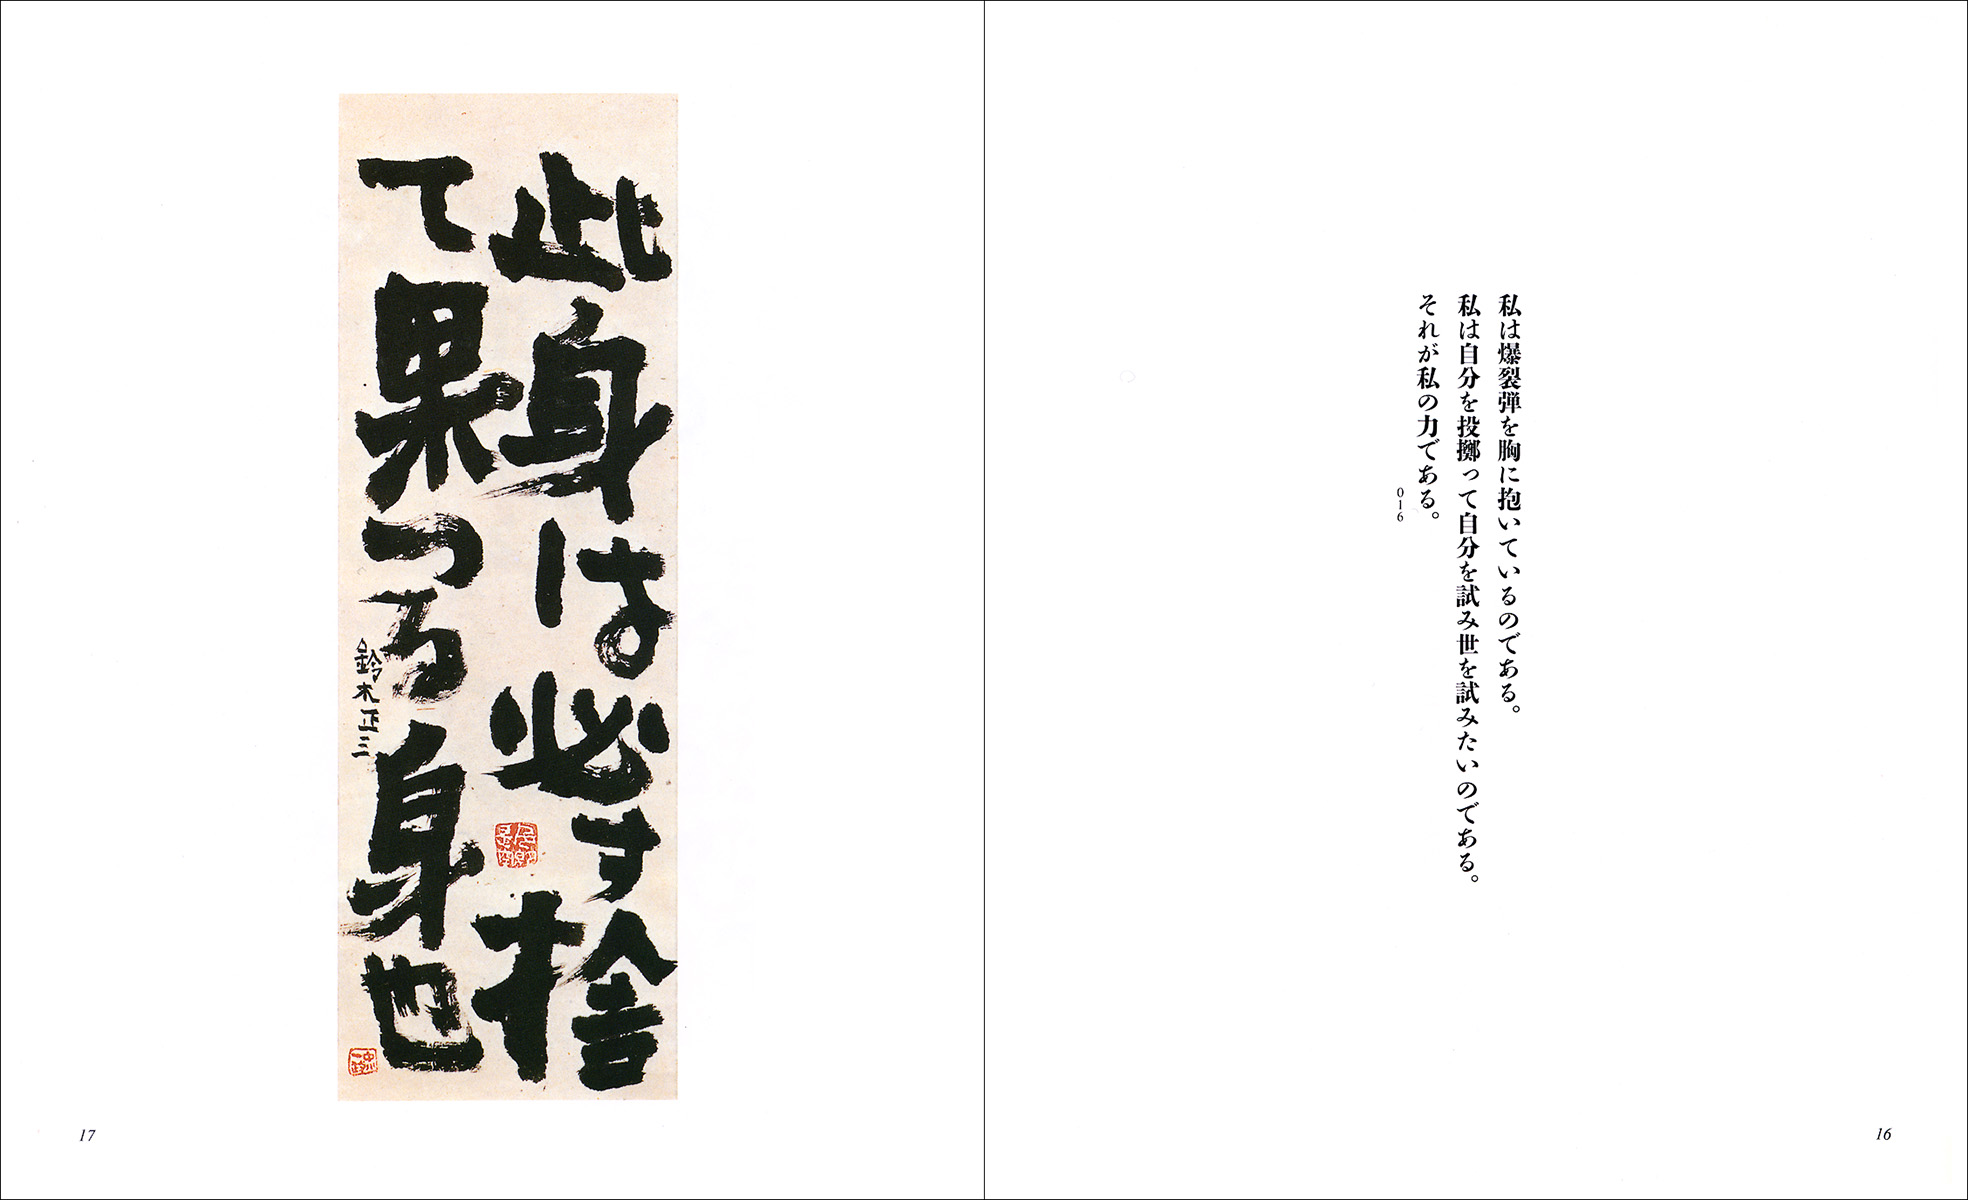 私は爆裂弾を胸に抱いているのである。
私は自分を投擲って自分を試み世を試みたいのである。
それが私の力である。
016
16
此身は必す捨
て果つる身也
鈴木正三
17